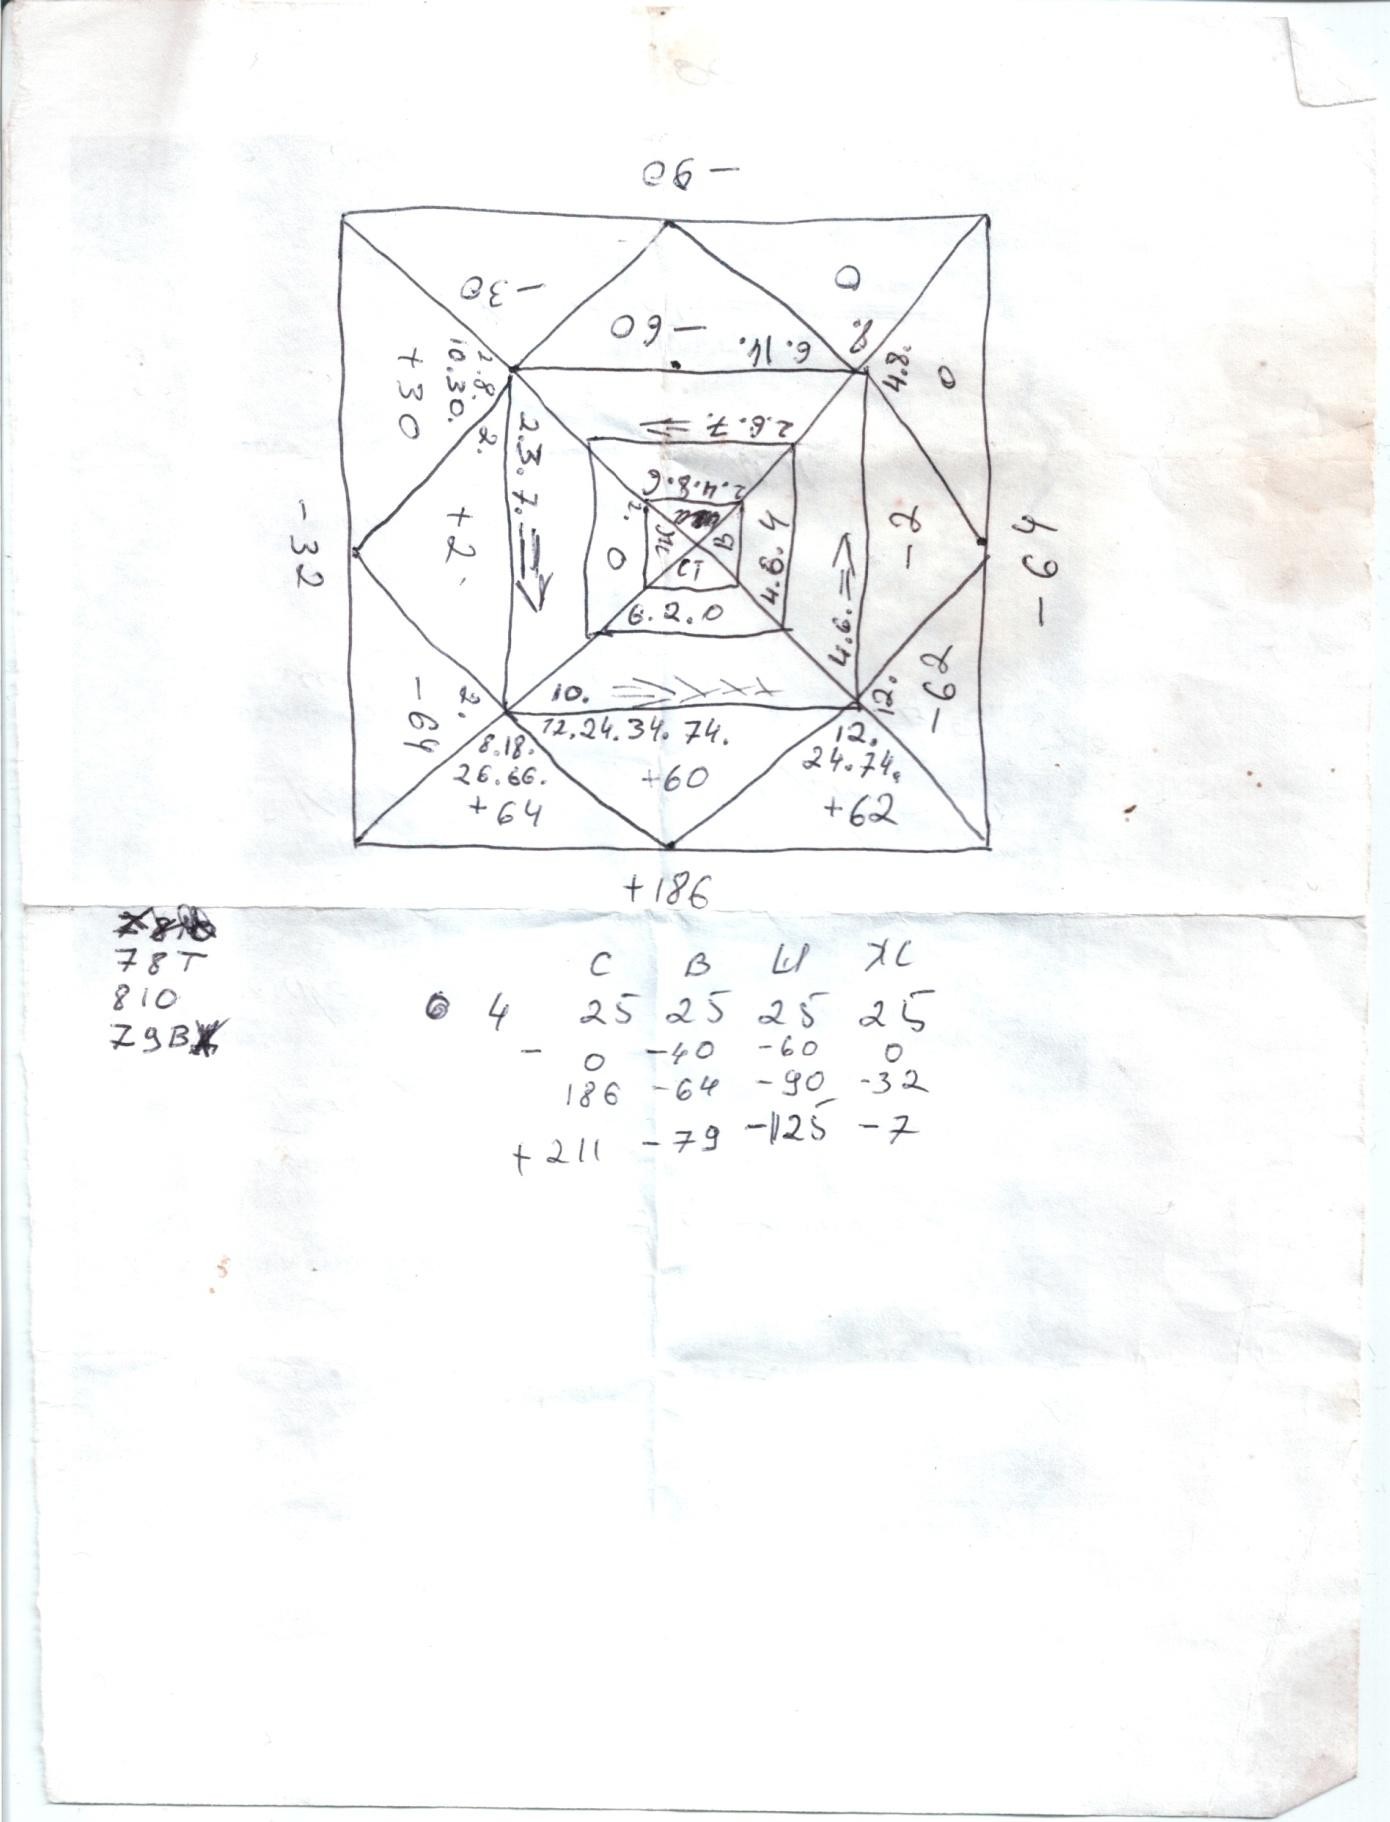 -90
-30
0
-60
6.14.
8.
4.8.
0
2.8.
10.30.
+30
2.
2.3.7.
2.6.7.
2.4.8.6
2.
+2
0
В
4.8.4
6.2.0
4.6.
-2
-32
-64
10.
-64
2.
12.
-62
8.18.
26.66.
+64
12.24.34.74.
+60
12.
24.74.
+62
+186
78Т
810
79В
С В Ш Ж
4 25 25 25 25
- 0 -40 -60 0
186 -64 -90 -32
+211 -79 -125 -7